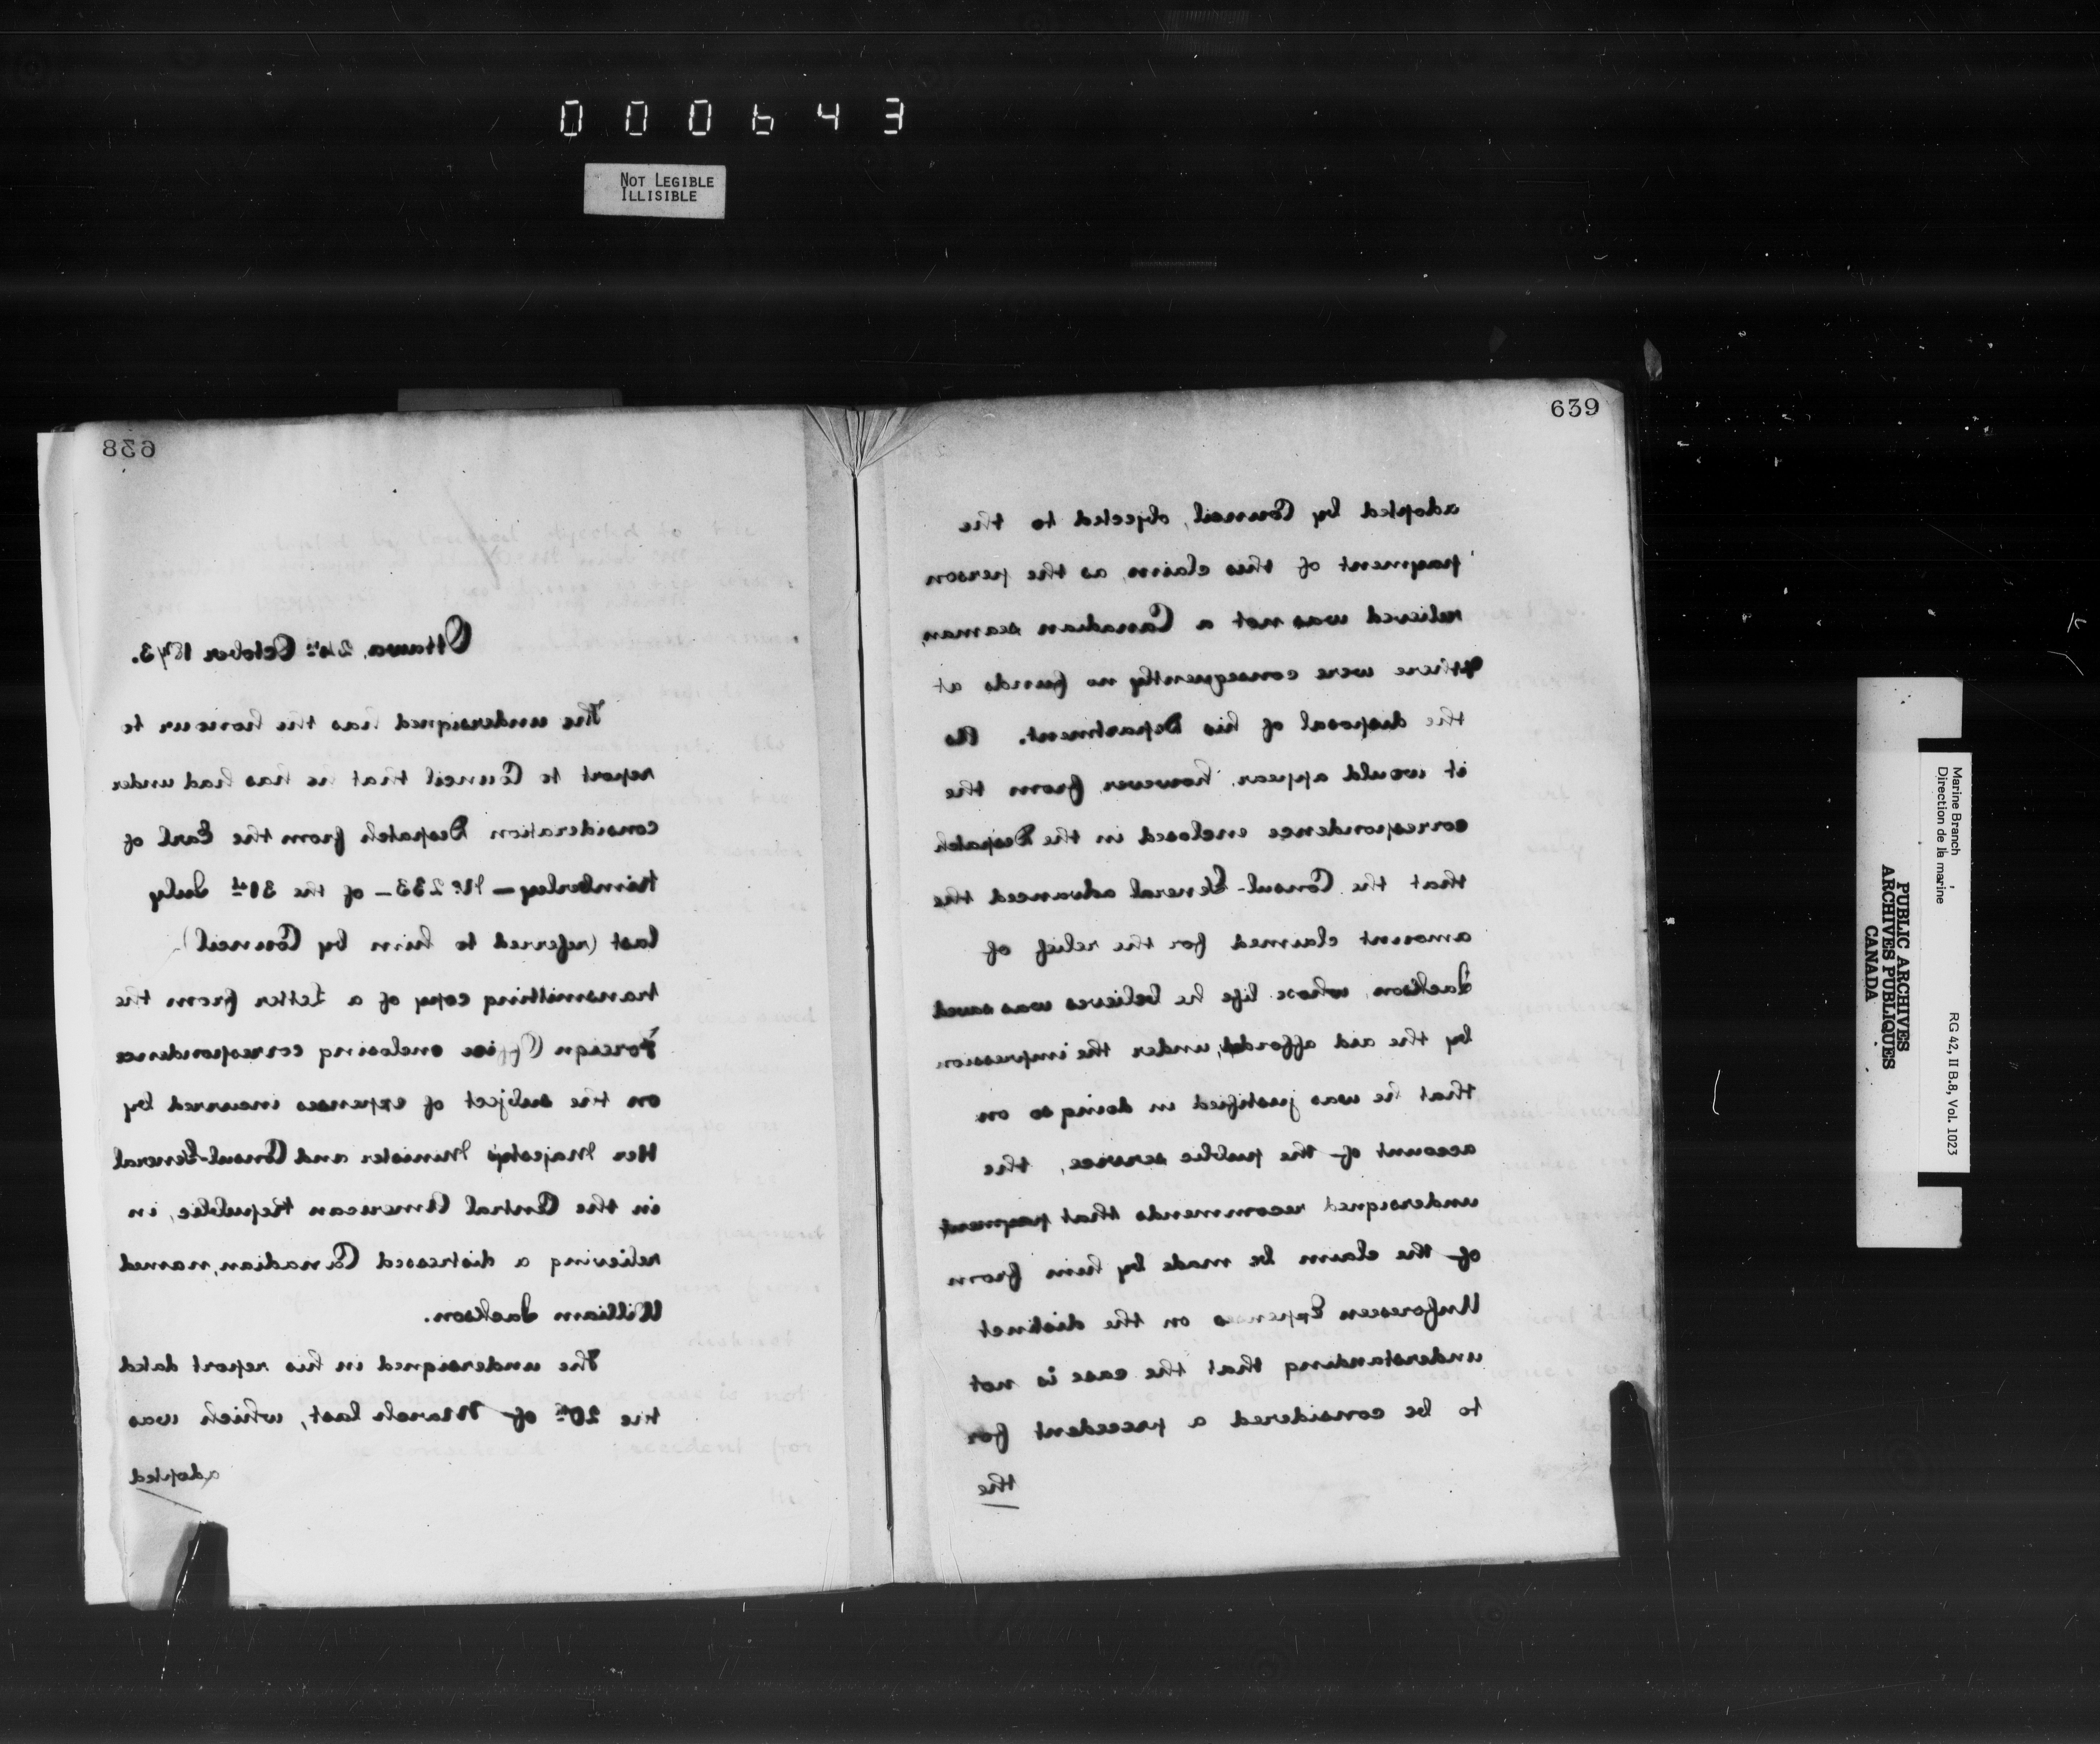 000643
NOT LEGIBLE
ILLISIBLE
638
Ottawa, 24th October 1873.
The undersigned has the honour to
report to Council that he has had under
consideration Despatch from the Earl of
Kimberley – No. 233 – of the 31st July
last (referred to him by Council)
transmitting copy of a Letter from the
Foreign Office enclosing correspondence
on the subject of expenses incurred by
Her Majesty's Minister and Consul-General
in the Central American Republic, in
relieving a distressed Canadian, named
William Jackson.
The undersigned in his report dated
the 20th of March last, which was
adopted
639
adopted by Council, objected to the
payment of this claim, as the person
relieved was not a Canadian seaman,
& there were consequently no funds at
the disposal of his Department. As
it would appear, however, from the
correspondence enclosed in the Despatch
that the Consul-General advanced the
amount claimed for the relief of
Jackson, whose life he believes was saved
by the aid afforded, under the impression
that he was justified in doing so on
account of the public service, the
undersigned recommends that payment
of the claim be made by him from
Unforeseen Expenses on the distinct
understanding that the case is not
to be considered a precedent for
the
Marine Branch
Direction de la marine
RG 42, II B.8, Vol. 1023
PUBLIC ARCHIVES
ARCHIVES PUBLIQUES
CANADA